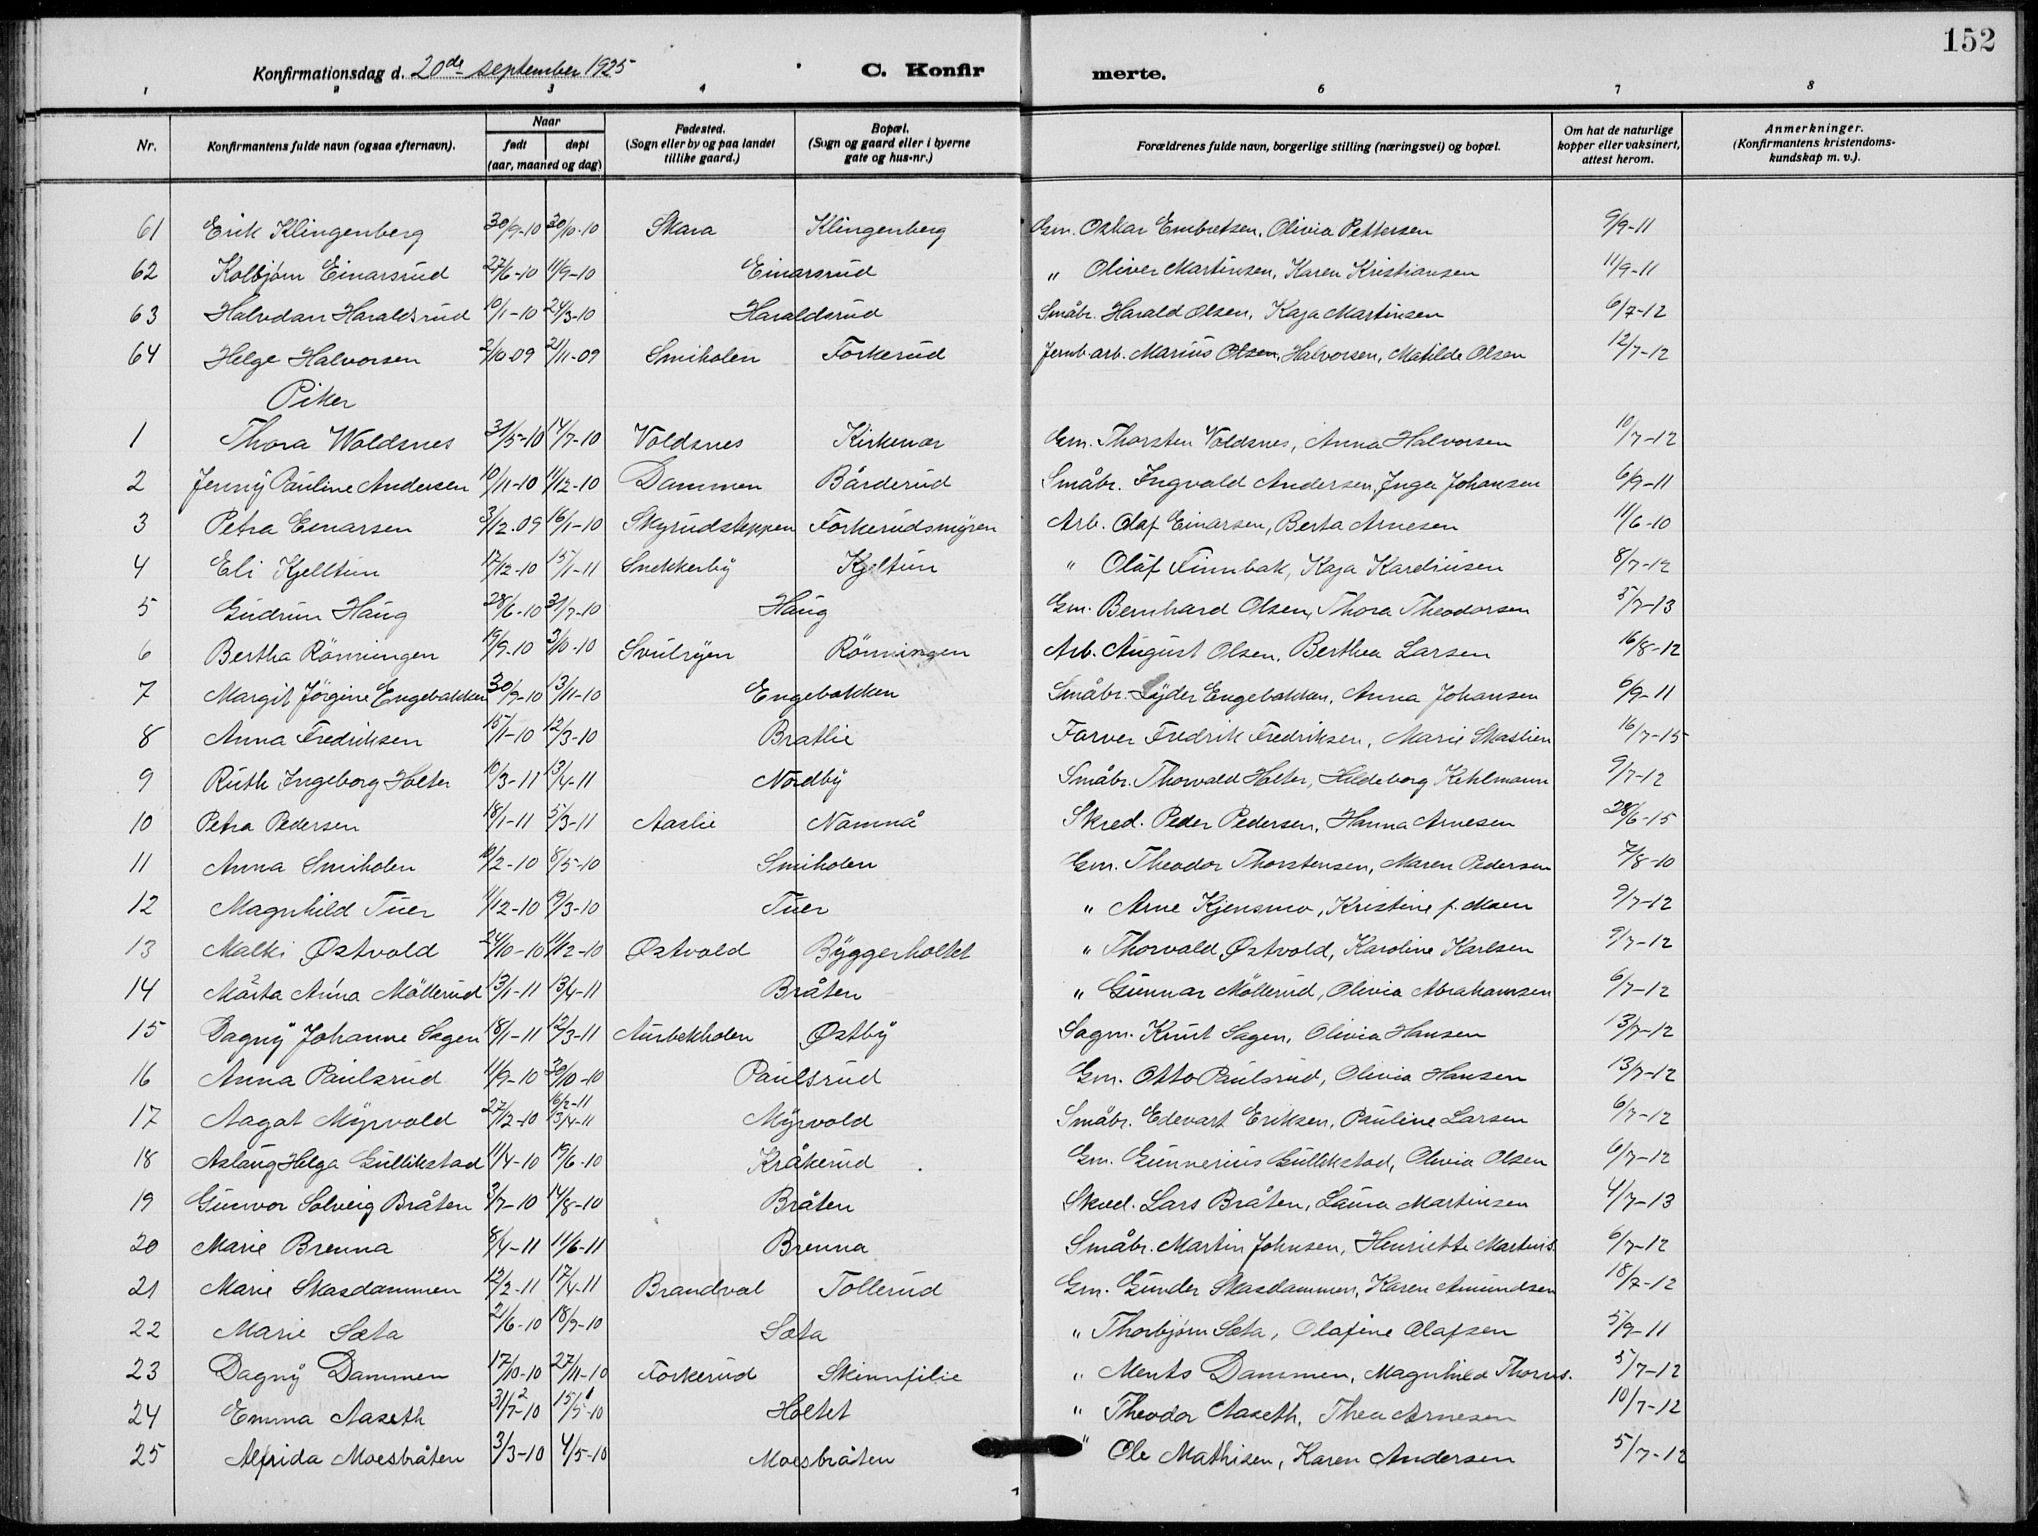 152
Konfirmationsdag d. 20de september 1925 C. Konfir merte.
1 2 3 4 6 7 8
Nr. Konfirmantens fulde navn (ogsaa efternavn). Naar født døpt (aar, maaned og dag) Fødested. (Sogn eller by og paa landet tillike gaard.) Bopæl. (Sogn og gaard eller i byerne gate og hus-nr.) Forældrenes fulde navn, borgerlige stilling (næringsvei) og bopæl. Om hat de naturlige kopper eller vaksinert, attest herom. Anmerkninger. (Konfirmantens kristendoms-kundskap m. v.).
61 Erik Klingenberg 30/9-10 30/10-10 Skara Klingenberg Gm. Oskar Embretsen, Olivia Pettersen 9/9-11
62 Kolbjørn Einarsrud 27/6-10 11/9-10 Einarsrud „ Oliver Martinsen, Karen Kristiansen 11/9-11
63 Halvdan Haraldsrud 10/1-10 24/3-10 Haraldsrud Småbr. Harald Olsen, Kaja Martinsen 6/7-12
64 Helge Halvorsen 2/10-09 21/11-09 Smiholen Forkerud Jernb. arb. Marius Olsen, Halvorsen, Matilde Olsen 12/7-12
Piker
1 Thora Woldsnes 31/5-10 14/7-10 Voldsnes Kirkenær Gm. Thorsten Voldsnes, Anna Halvorsen 10/7-12
2 Jenny Pauline Andersen 10/11-10 11/12-10 Dammen Bårderud Småbr. Ingvald Andersen, Inga Johansen 6/9-11
3 Petra Einarsen 3/12-09 16/1-10 Skyrudsteppen Forkerudsmyren Arb. Olaf Einarsen, Berta Arnesen 11/6-10
4 Eli Kjelltun 17/12-10 15/1-11 Snekkerby Kjeltun „ Olaf Finnbak, Kaja Kardiusen 8/7-12
5 Gudrun Haug 28/6-10 31/7-10 Haug Gm. Bernhard Olsen, Thora Theodorsen 5/7-13
6 Bertha Rönningen 19/9-10 3/10-10 Svulryen Rönningen Arb. August Olsen, Berthea Larsen 16/8-12
7 Margit Jörgine Engebakken 30/9-10 13/11-10 Engebakken Småbr. Lyder Engebakken, Anna Johansen 6/9-11
8 Anna Fredriksen 15/1-10 12/3-10 Bratlie Farver Fredrik Fredriksen, Marie Skaslien 16/7-15
9 Ruth Ingeborg Holter 10/3-11 13/4-11 Nordby Småbr. Thorvald Holter, Hildeborg Kehlmann 9/7-12
10 Petra Pedersen 18/1-11 5/3-11 Aaslie Namnå Skred. Peder Pedersen, Hanna Arnesen 28/6-15
11 Anna Smiholen 10/2-10 8/5-10 Smiholen Gm. Theodor Thorstensen, Maren Pedersen 7/8-10
12 Magnhild Tuer 11/12-10 19/3-10 Tuer „ Arne Kjensmo, Kristine f. Moen 9/7-12
13 Malti Østvold 24/10-10 11/12-10 Østvold Byggerholtet „ Thorvald Østvold, Karoline Karlsen 9/7-12
14 Märta Anna Möllerud 13/1-11 13/4-11 Bråten „ Gunnar Möllerud, Olivia Abrahamsen 6/7-12
15 Dagny Johanne Sagen 18/1-11 12/3-11 Aurbekholen Østby Sagm. Knut Sagen, Olivia Hansen 13/7-12
16 Anna Paulsrud 11/9-10 30/10-10 Paulsrud Gm. Otto Paulsrud, Olivia Hansen 13/7-12
17 Aagot Myrvold 27/12-10 16/2-11 13/4-11 Myrvold Småbr. Edevart Eriksen, Pauline Larsen 6/7-12
18 Aslaug Helga Gullikstad 11/4-10 19/6-10 Kråkerud Gm. Gunnerius Gullikstad, Olivia Olsen 6/7-12
19 Gunvor Solveig Bråten 3/7-10 14/8-10 Bråten Skred. Lars Bråten, Laura Martinsen 4/7-13
20 Marie Brenna 8/4-11 11/6-11 Brenna Småbr. Martin Johnsen, Henriette Martins. 6/7-12
21 Marie Skasdammen 12/2-11 17/4-11 Brandval Tollerud Gm. Gunder Skasdammen, Karen Amundsen 18/7-12
22 Marie Sæta 21/6-10 18/9-10 Sæta „ Thorbjørn Sæta, Olafine Olafsen 5/9-11
23 Dagny Dammen 17/10-10 27/11-10 Forkerud Skinnfilie „ Ments Dammen, Magnhild Thorvs. 5/7-12
24 Emma Aaseth 31/2-10 15/5-10 Holtet „ Theodor Aaseth, Thea Arnesen 10/7-12
25 Alfrida Moesbråten 3/3-10 4/5-10 Moesbråten „ Ole Mathisen, Karen Andersen 5/7-12